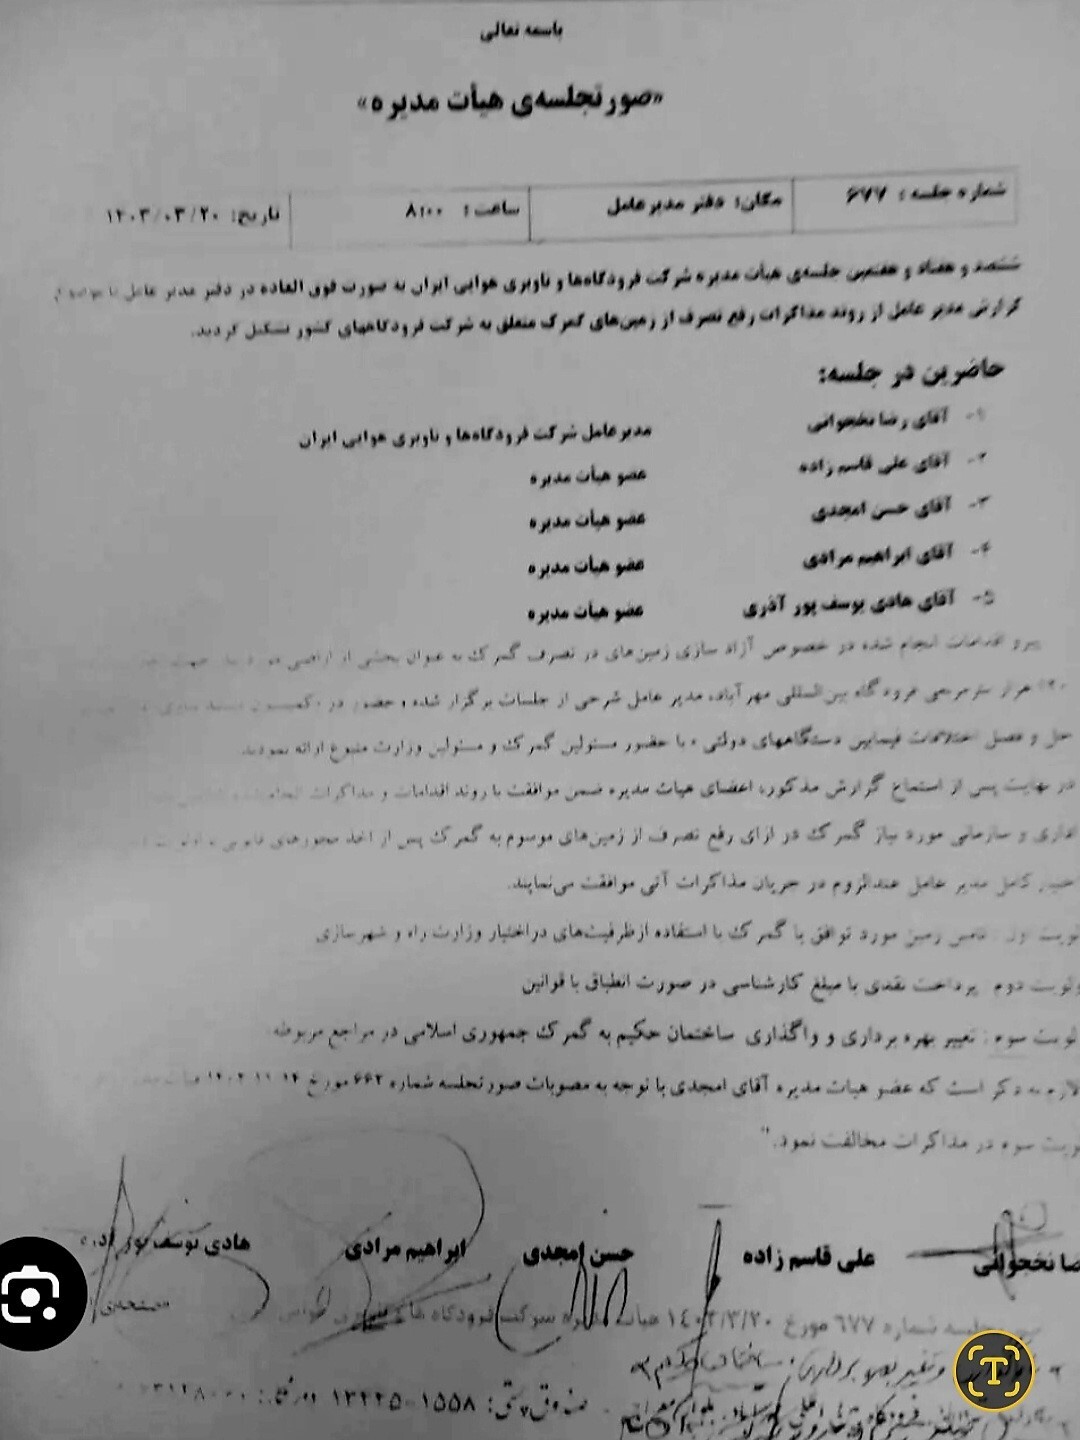 باسمه تعالی
«صورتجلسه‌ی هیأت مدیره»
شماره جلسه: ۶۷۷ مکان: دفتر مدیرعامل ساعت: ۸:۰۰ تاریخ: ۱۴۰۳/۰۳/۲۰
ششصد و هفتاد و هفتمین جلسه‌ی هیأت مدیره شرکت فرودگاه‌ها و ناوبری هوایی ایران به صورت فوق العاده در دفتر مدیر عامل با
گزارش مدیر عامل از روند مذاکرات رفع تصرف از زمین‌های گمرک متعلق به شرکت فرودگاههای کشور تشکیل گردید.
حاضرین در جلسه:
۱- آقای رضا نخجوانی مدیرعامل شرکت فرودگاه‌ها و ناوبری هوایی ایران
۲- آقای علی قاسم زاده عضو هیأت مدیره
۳- آقای حسن امجدی عضو هیأت مدیره
۴- آقای ابراهیم مرادی عضو هیأت مدیره
۵- آقای هادی یوسف پور آذری عضو هیأت مدیره
پیرو اقدامات انجام شده در خصوص آزاد سازی زمین‌های در تصرف گمرک به عنوان بخشی از اراضی
هزار مترمربعی فرودگاه بین‌المللی مهرآباد، مدیر عامل شرحی از جلسات برگزار شده و حضور در
حل و فصل اختلافات فیمابین دستگاههای دولتی » با حضور مسئولین گمرک و مسئولین وزارت متبوع ارائه نمودند.
در نهایت پس از استماع گزارش مذکور، اعضای هیات مدیره ضمن موافقت با روند اقدامات و مذاکرات انجام شده
اداری و سازمانی مورد نیاز گمرک در ازای رفع تصرف از زمین‌های موسوم به گمرک پس از اخذ مجوزهای قانونی
اختیار کامل مدیر عامل عندالزوم در جریان مذاکرات آتی موافقت می‌نمایند.
اول : تامین زمین مورد توافق با گمرک با استفاده ازظرفیت‌های دراختیار وزارت راه و شهرسازی
دوم : پرداخت نقدی با مبلغ کارشناسی در صورت انطباق با قوانین
سوم : تغییر بهره برداری و واگذاری ساختمان حکیم به گمرک جمهوری اسلامی در مراجع مربوطه
لازم به ذکر است که عضو هیات مدیره آقای امجدی با توجه به مصوبات صورتجلسه شماره ۶۶۲ مورخ ۱۴۰۲/۱۱/۱۴
سوم در مذاکرات مخالفت نمود."
نخجوانی علی قاسم زاده حسن امجدی ابراهیم مرادی هادی یوسف پور
جلسه شماره ۶۷۷ مورخ ۱۴۰۳/۳/۲۰ هیات مدیره شرکت فرودگاه ها
صندوق پستی: ۱۵۵۸-۱۳۴۴۵